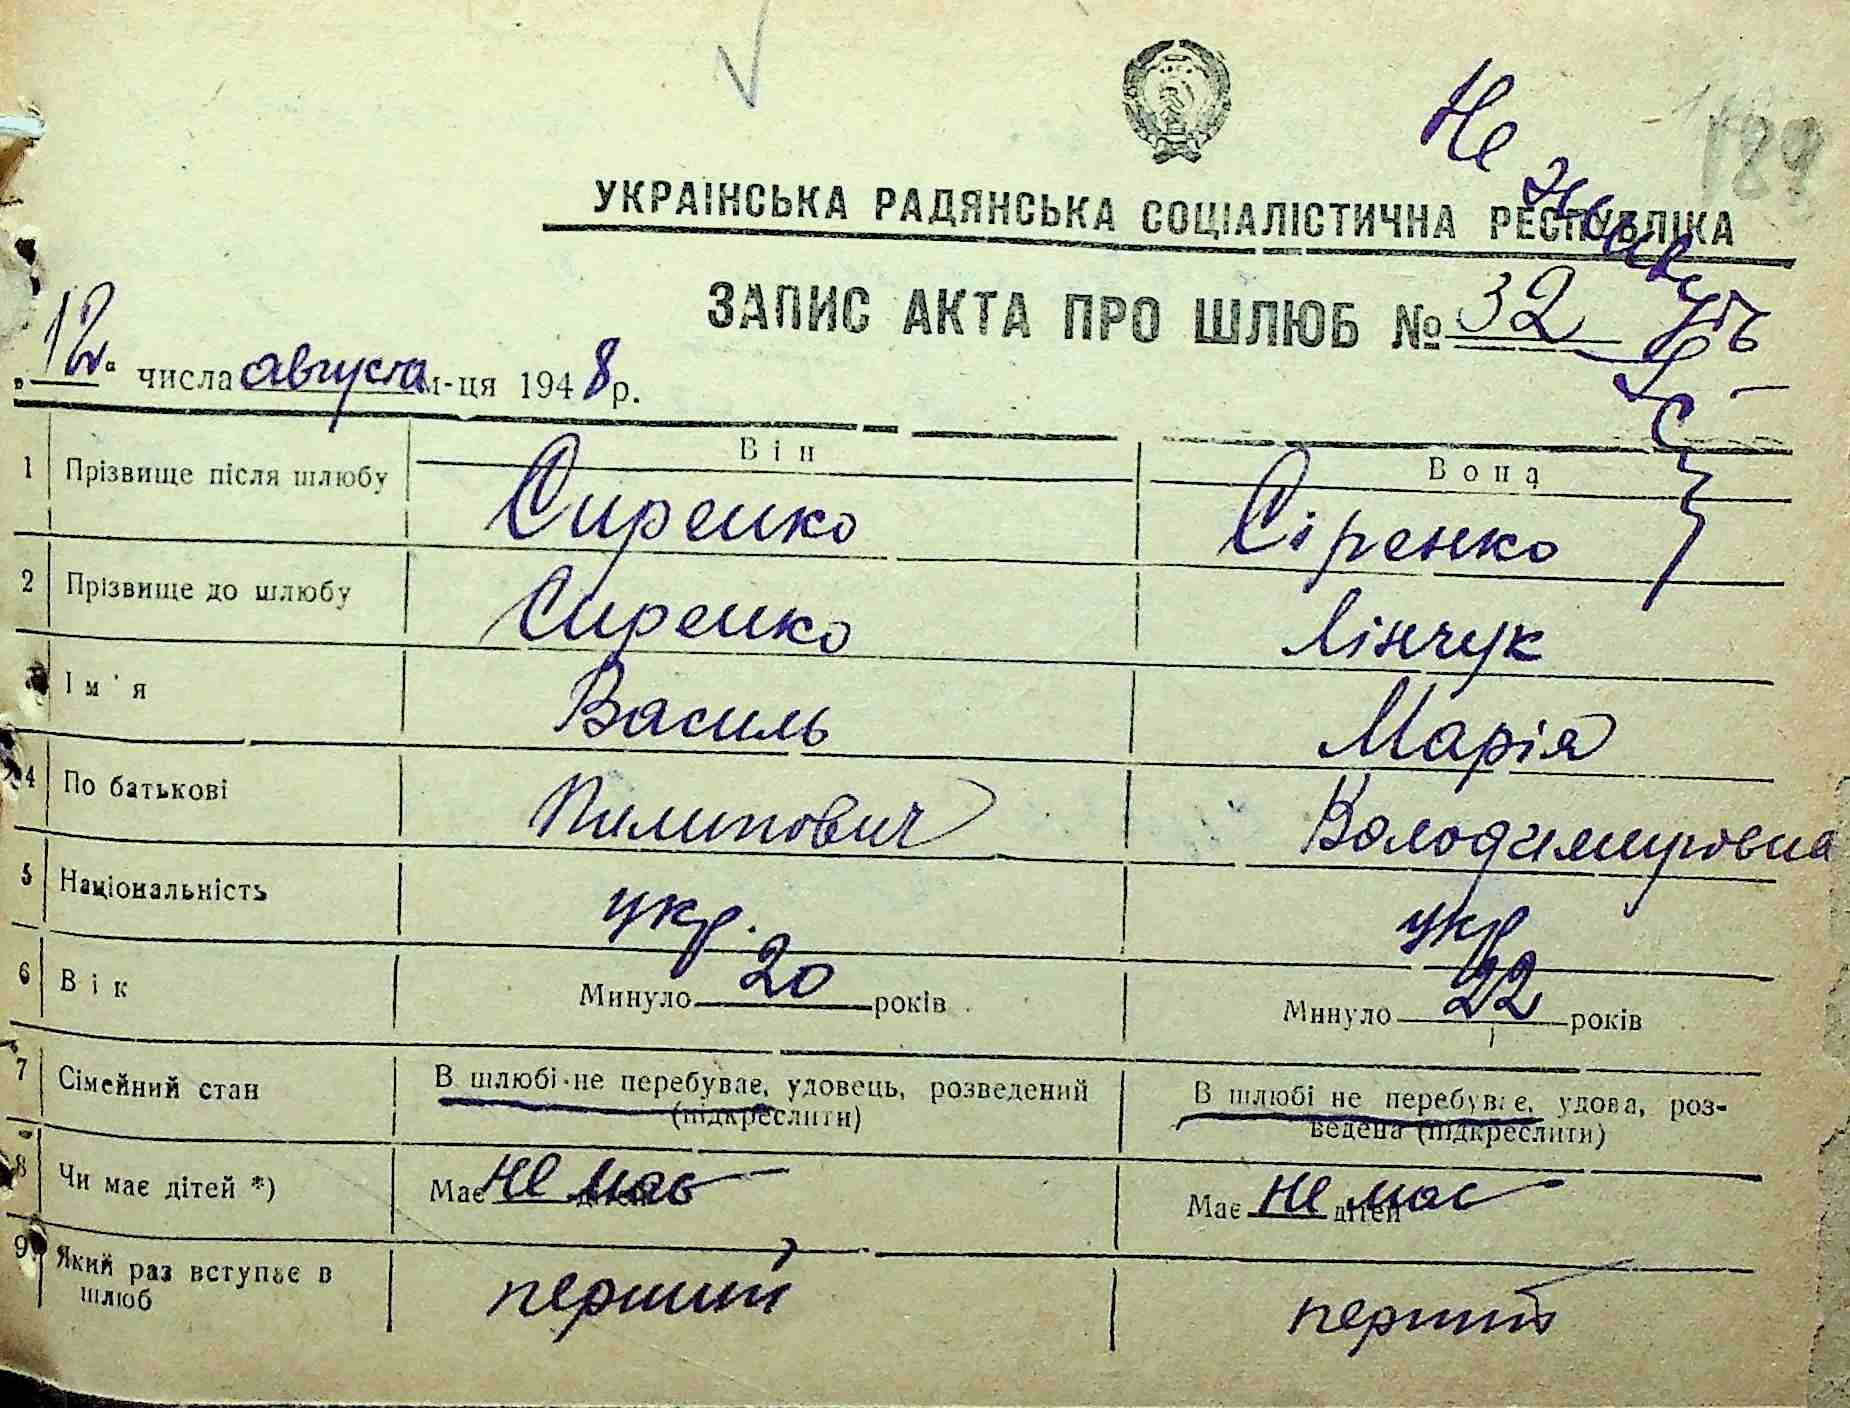 Не живуть
189
УКРАЇНСЬКА РАДЯНСЬКА СОЦІАЛІСТИЧНА РЕСПУБЛІКА
ЗАПИС АКТА ПРО ШЛЮБ № 32
„12“ числа августа м-ця 1948 р.
Він Вона
1 Прізвище після шлюбу Сиренко Сіренко
2 Прізвище до шлюбу Сиренко Лінчук
Ім'я Василь Марія
4 По батькові Пилипович Володимировна
5 Національність укр. укр
6 Вік Минуло 20 років Минуло 22 років
7 Сімейний стан В шлюбі не перебуває, удовець, розведений (підкреслити) В шлюбі не перебуває, удова, роз-
ведена (підкреслити)
8 Чи має дітей *) Має не має дітей Має не має дітей
9 Який раз вступає в шлюб перший перший